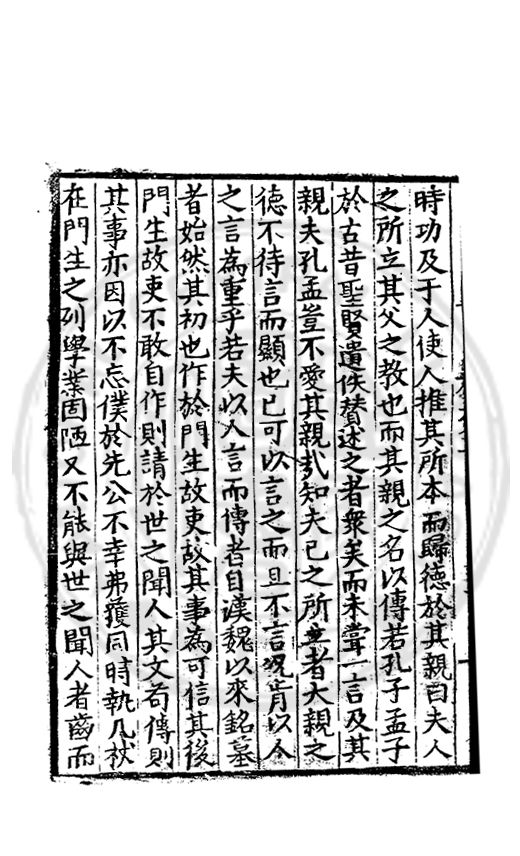 時功及于人使人推其所本而歸德於其親曰夫人
之所立其父之教也而其親之名以傳若孔子孟子
於古昔聖賢遺佚贊述之者衆矣而未嘗一言及其
親夫孔孟豈不愛其親哉知夫已之所立者大親之
德不待言而顯也已可以言之而且不言况肯以今
之言為重乎若夫以人言而傳者自漢魏以來銘墓
者始然其初也作於門生故吏故其事為可信其後
門生故吏不敢自作則請於世之聞人其文苟傳則
其事亦因以不忘僕於先公不幸弗獲同時執几杖
在門生之列學業固陋又不能與世之聞人者齒而